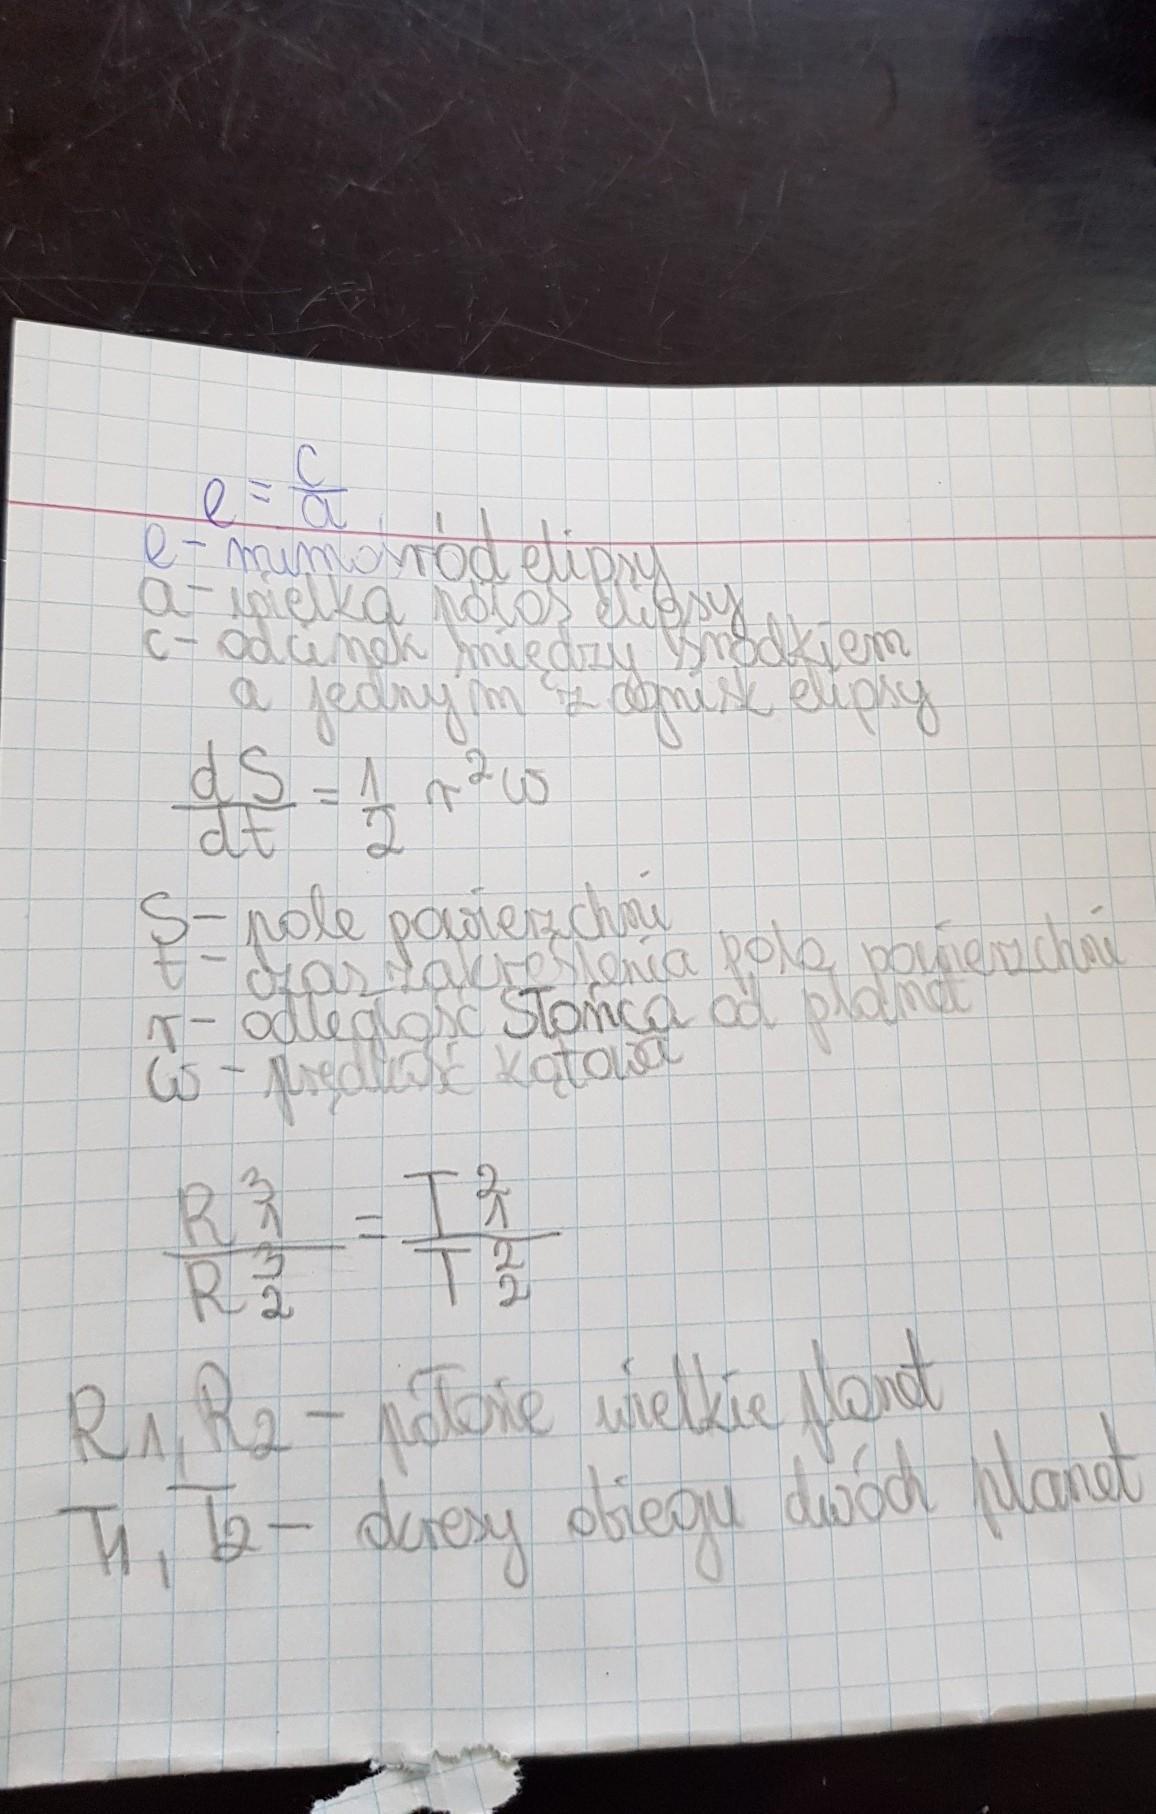 e = c/a
e - mimośród elipsy
a - wielka półoś elipsy
c - odcinek między środkiem
a jednym z ognisk elipsy
dS/dt = 1/2 r²ω
S - pole powierzchni
t - czas zakreślenia pola powierzchni
r - odległość Słońca od planet
ω - prędkość kątowa
R₁³/R₂³ = T₁²/T₂²
R1, R2 - półosie wielkie planet
T1, T2 - okresy obiegu dwóch planet